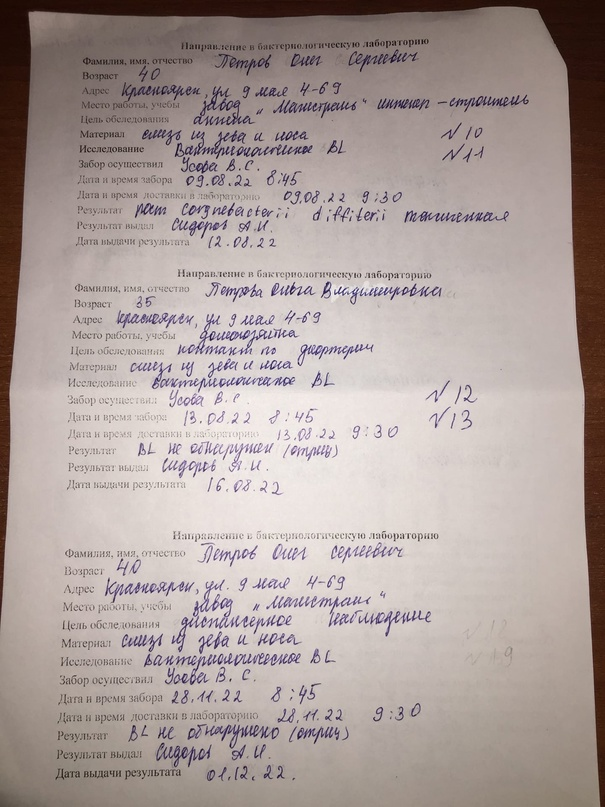 Направление в бактериологическую лабораторию
Фамилия, имя, отчество Петров Олег Сергеевич
Возраст 40
Адрес Красноярск, ул 9 мая 4-69
Место работы, учебы завод "Магистраль" инженер-строитель
Цель обследования ангина
Материал слизь из зева и носа №10
Исследование Бактериологическое BL №11
Забор осуществил Усова В.С.
Дата и время забора 09.08.22 8:45
Дата и время доставки в лабораторию 09.08.22 9:30
Результат рост corynebacterii diffiterii токсигенная
Результат выдал Сидоров А.И.
Дата выдачи результата 12.08.22
Направление в бактериологическую лабораторию
Фамилия, имя, отчество Петрова Ольга Владимировна
Возраст 35
Адрес Красноярск, ул 9 мая 4-69
Место работы, учебы домохозяйка
Цель обследования контакт по дифтерии
Материал слизь из зева и носа
Исследование Бактериологическое BL
Забор осуществил Усова В.С. №12
Дата и время забора 13.08.22 8:45 №13
Дата и время доставки в лабораторию 13.08.22 9:30
Результат BL не обнаружен (отриц)
Результат выдал Сидоров А.И.
Дата выдачи результата 16.08.22
Направление в бактериологическую лабораторию
Фамилия, имя, отчество Петров Олег Сергеевич
Возраст 40
Адрес Красноярск, ул. 9 мая 4-69
Место работы, учебы завод "Магистраль"
Цель обследования диспансерное наблюдение
Материал слизь из зева и носа
Исследование Бактериологическое BL
Забор осуществил Усова В. С.
Дата и время забора 28.11.22 8:45
Дата и время доставки в лабораторию 28.11.22 9:30
Результат BL не обнаружено (отриц)
Результат выдал Сидоров А.И.
Дата выдачи результата 01.12.22.